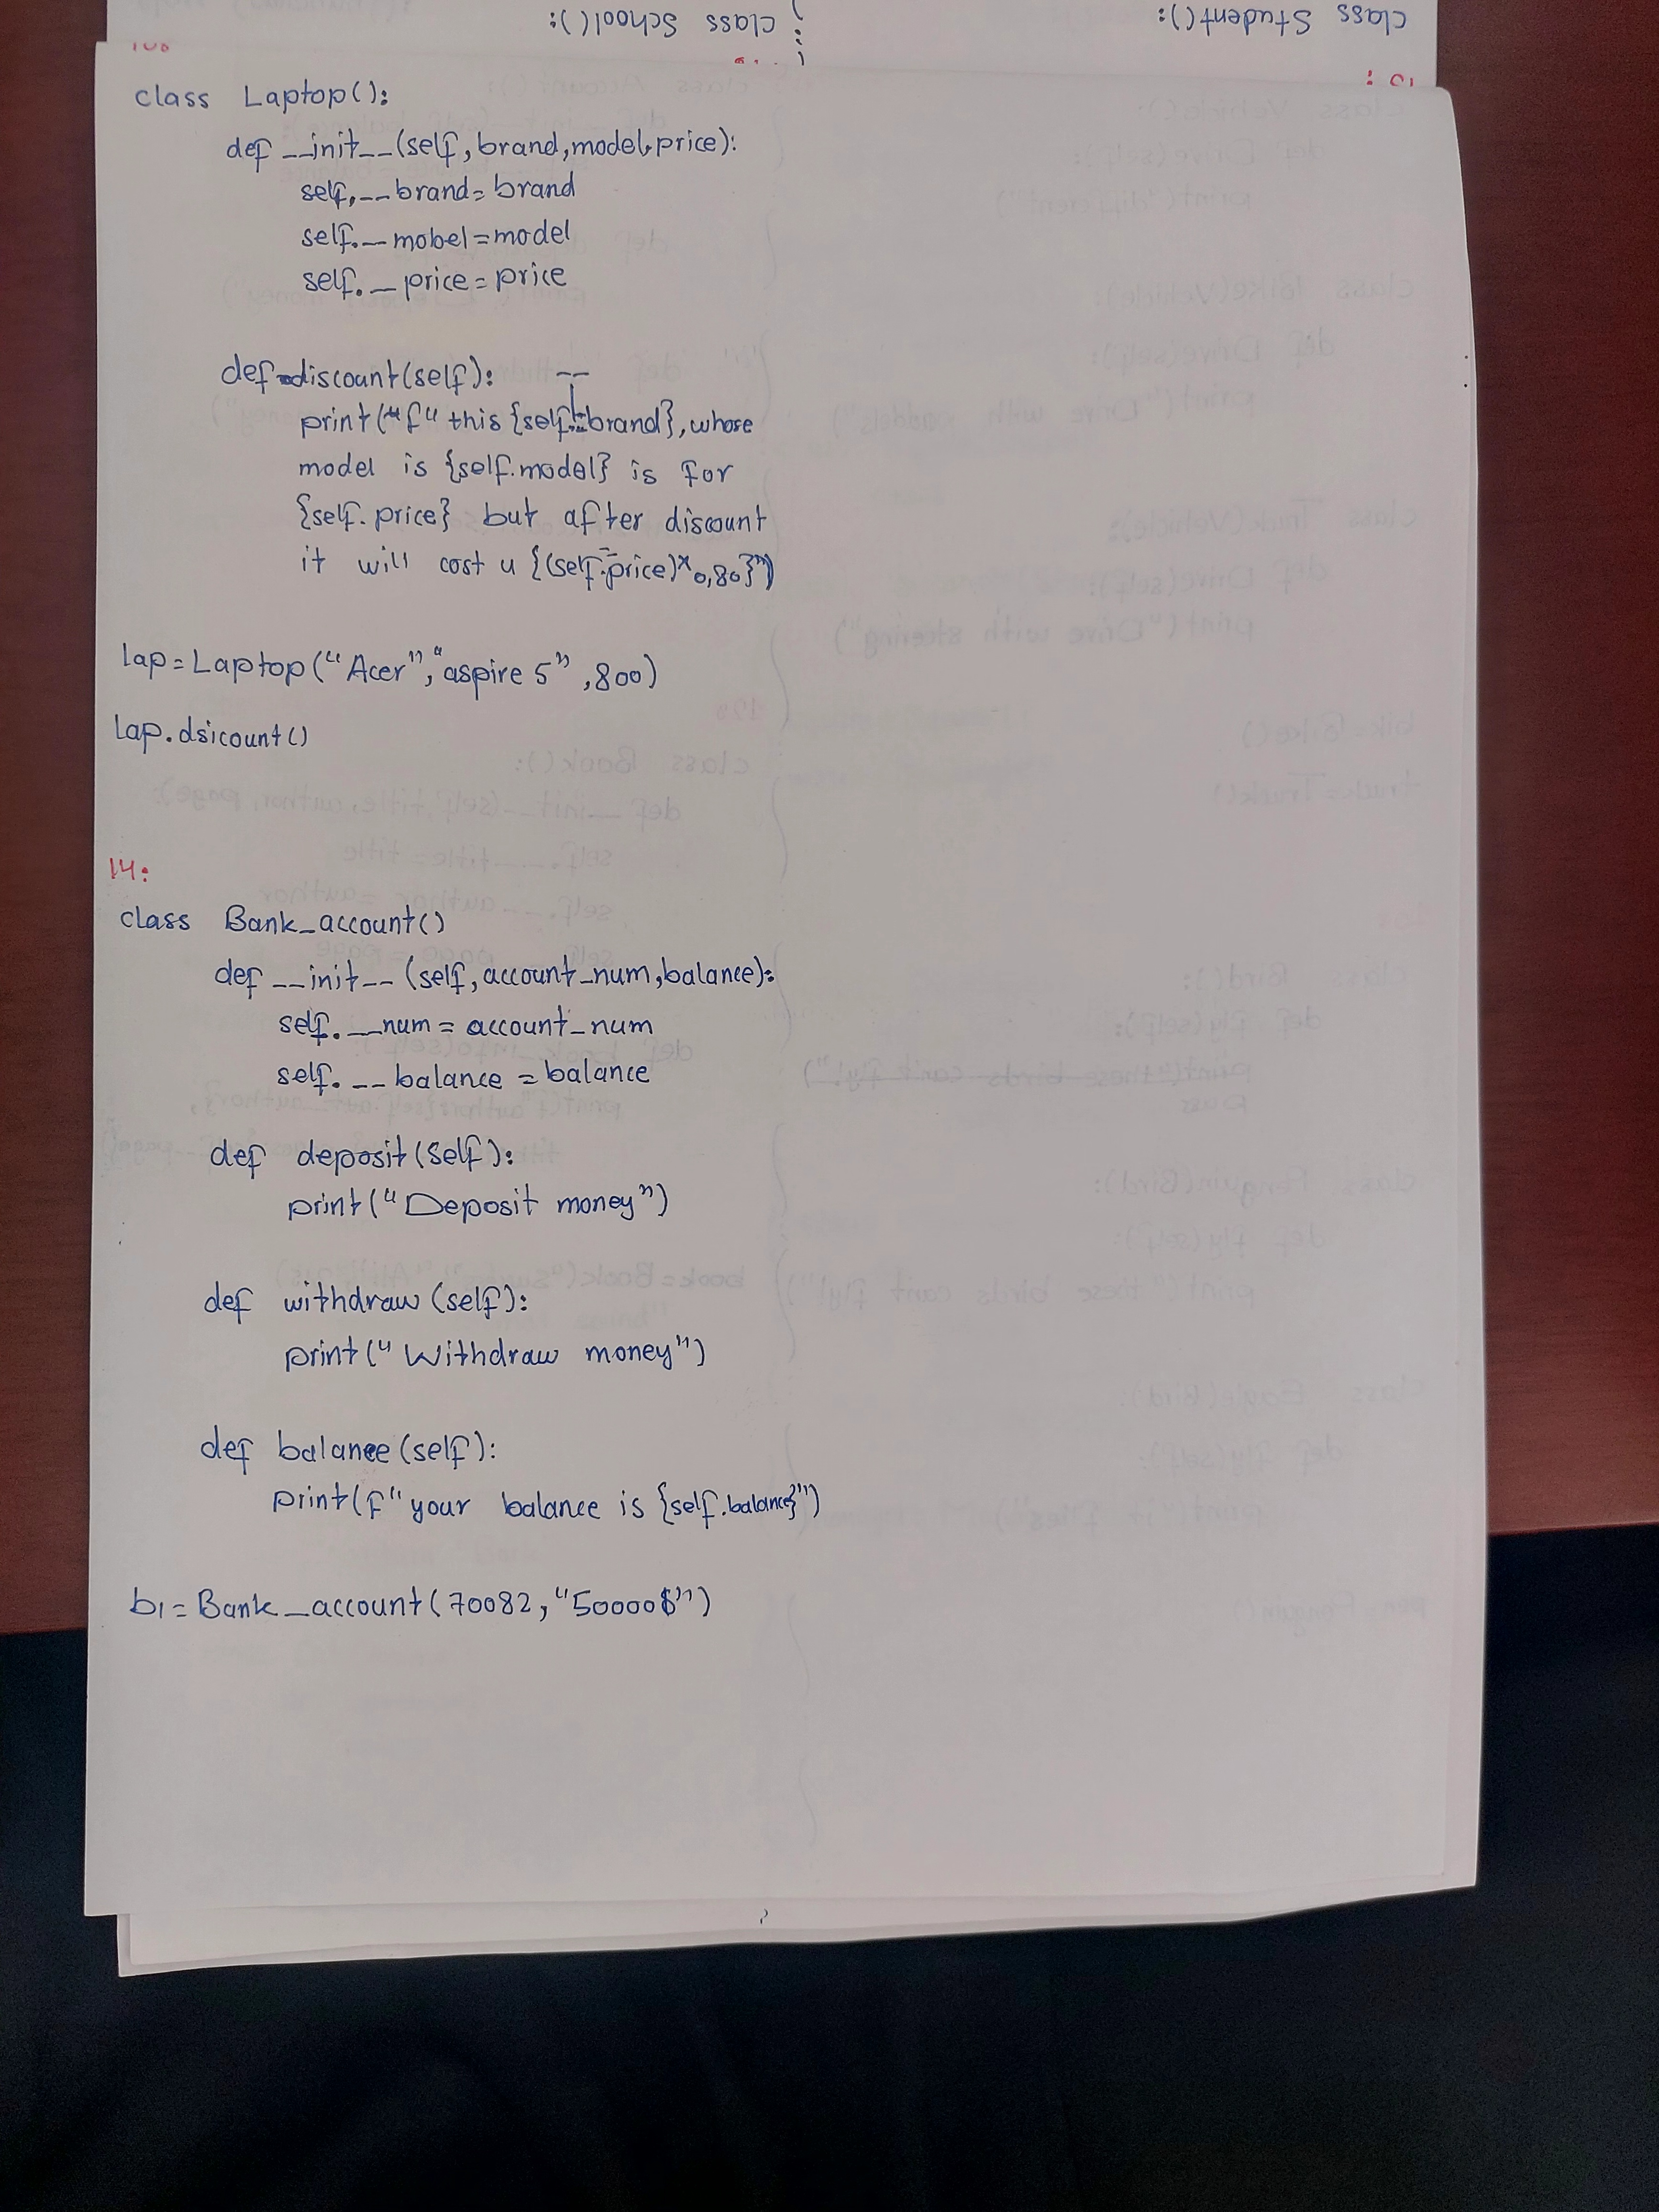 class School():
class Student():
class Laptop():
def __init__(self, brand, model, price):
self.__brand = brand
self.__mobel = model
self.__price = price
def discount(self):
print(f“ this {self.__brand}, whose
model is {self.model} is for
{self.price} but after discount
it will cost u {(self.price)*0,80}”)
lap = Laptop(“Acer”, “aspire 5”, 800)
lap.dsicount()
14:
class Bank_account()
def __init__(self, account_num, balance):
self.__num = account_num
self.__balance = balance
def deposit(self):
print(“Deposit money”)
def withdraw(self):
print(“Withdraw money”)
def balance(self):
print(f“ your balance is {self.balance}”)
b1 = Bank_account(70082, “50000$”)